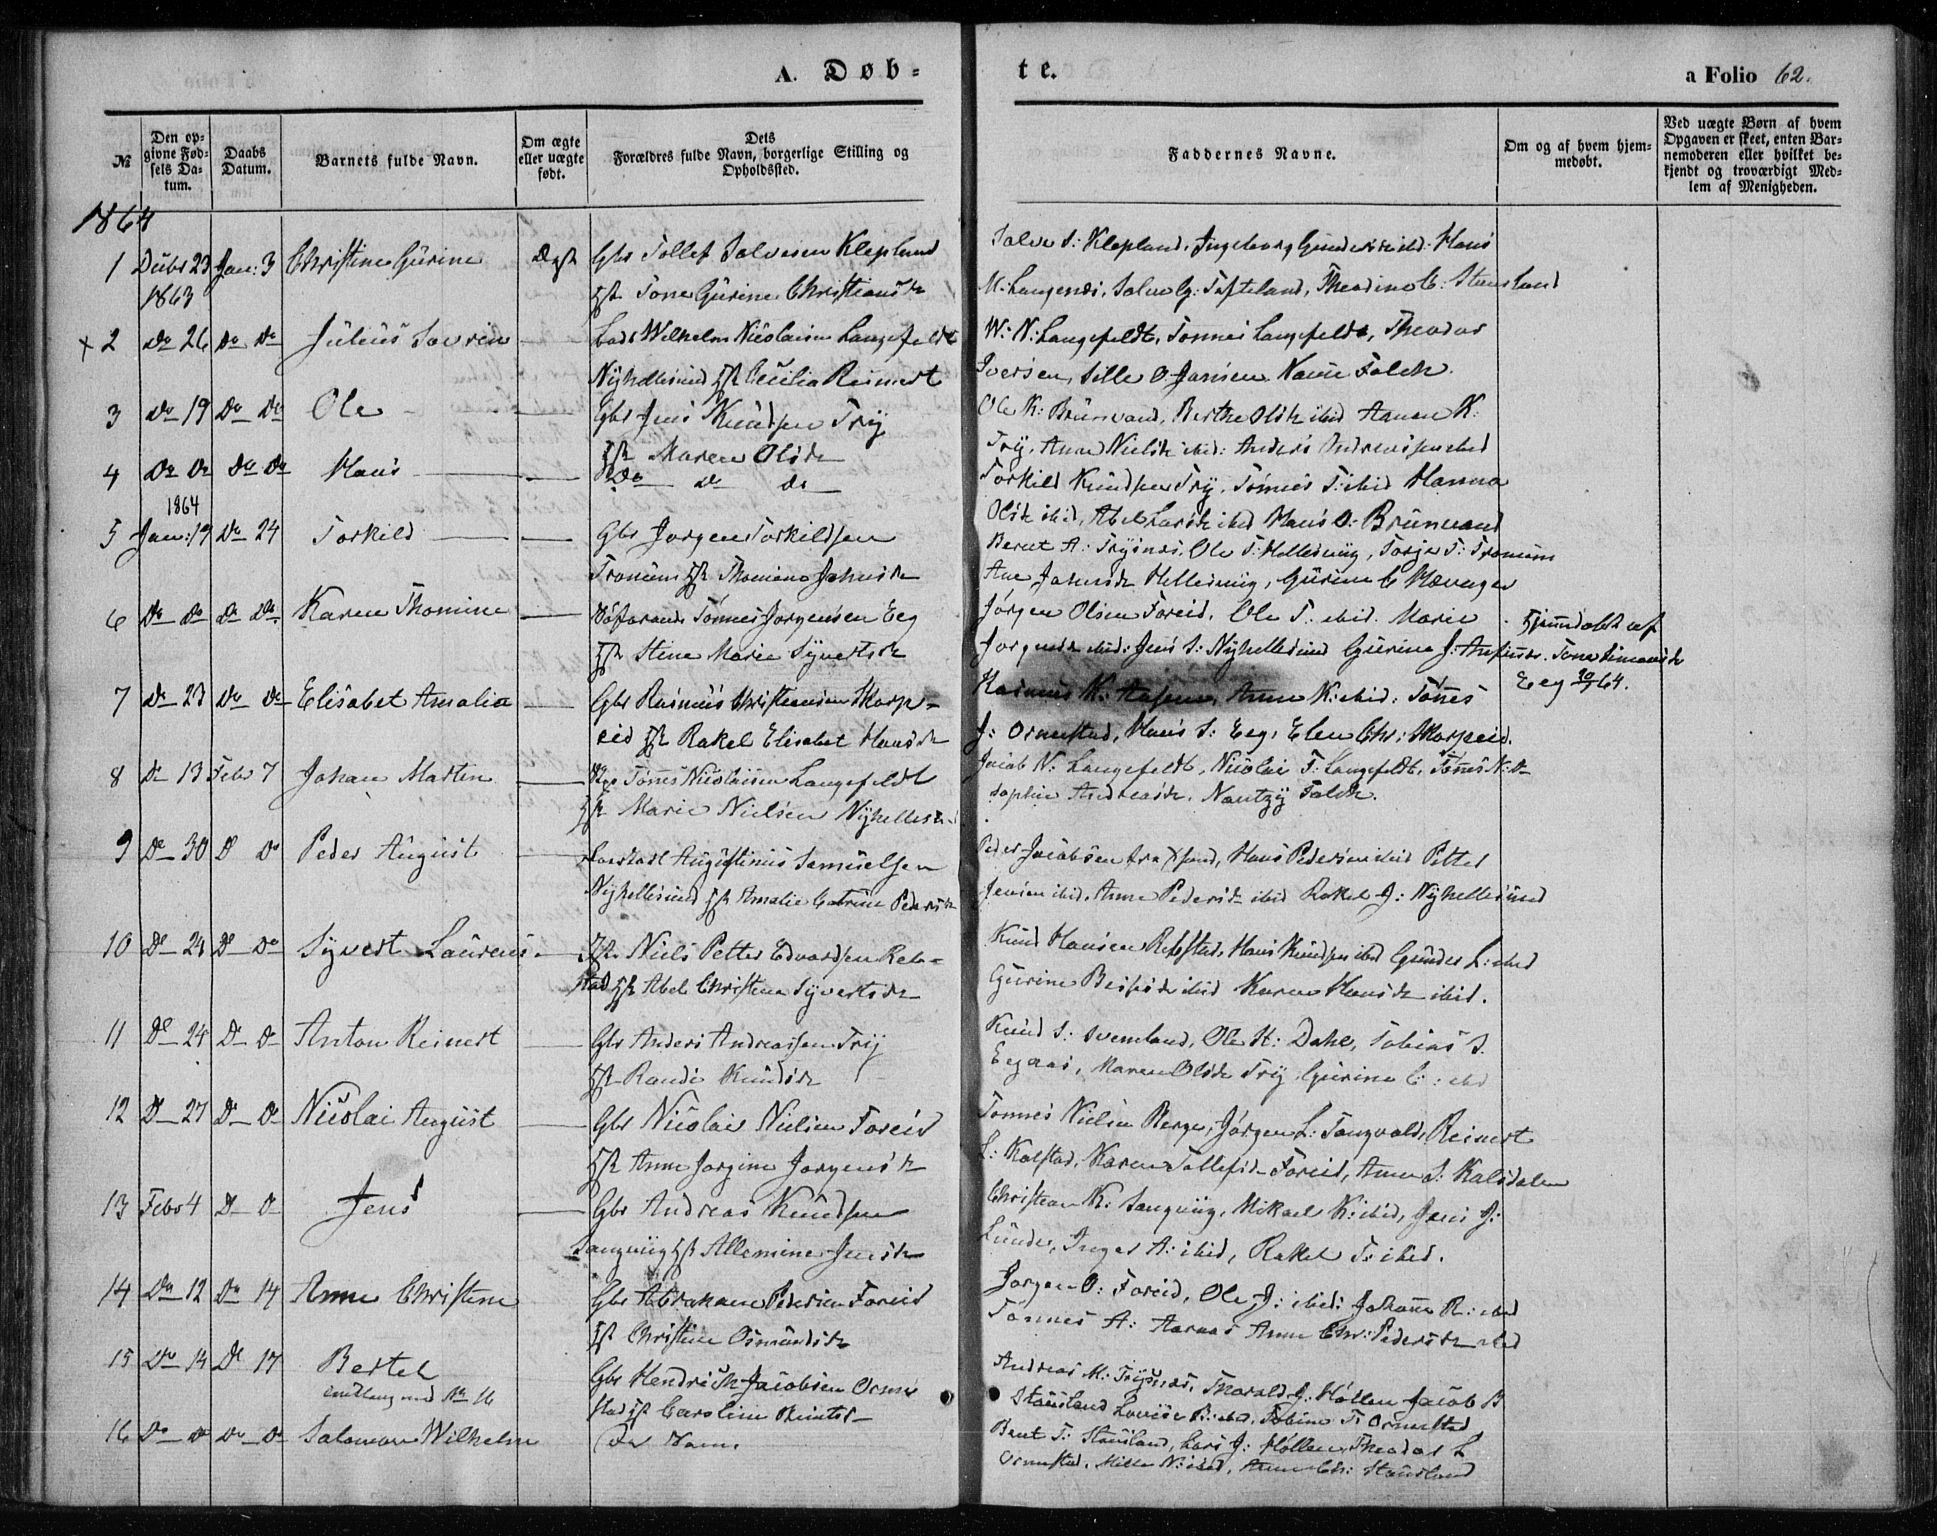 A. Døb-
te.
a Folio 62.
№
Den opgivne Fødsels Datum.
Daabs Datum.
Barnets fulde Navn.
Om ægte eller uægte født.
Dets Forældres fulde Navn, borgerlige Stilling og Opholdssted.
Faddernes Navne.
Om og af hvem hjemmedøbt.
Ved uægte Børn af hvem Opgaven er skeet, enten Barnemoderen eller hvilket bekjendt og troværdigt Medlem af Menigheden.
1864
1 Decbr 23 1863 Jan: 3 Christine Gurine Ægte Gbr Tollef Salvesen Klepland
Tone Gurine Christiansdr
Salve S: Klepland, Ingeborg Gundersd ibid. Hans
M. Langenes, Salve G: Tofteland, Theodine C. Stausland
x 2 Do 26 Do Do Julius Severin Lods Wilhelm Nicolaisen Langefeldt
Nyhellesund Cecilia Reinert
W: N: Langefeldt, Tønnes Langefeldt, Theodor
Iversen, Sille O. Jansen
3 Do 19 Do Do Ole Gbr Jens Knudsen Try
Maren Olsdr
Ole K: Brunvand, Berthe Olsdr ibid Aanen K:
Try, Anne Nielsdr ibid: Anders Andreassen ibid
4 Do Do Do Do Hans Do Do Do
Torkild Knudsen Try, Tønnes T: ibid Hanna
Olsdr ibid, Abel Larsdr ibid Hans O: Brunvand
1864
5 Jan: 19 Do 24 Torkild Gbr Jørgen Torkildsen
Tronum Thomine Johnsdr
Bernt A: Trysnes, Ole T: Hellevig, Torje T: Tronum
Ane Johnsdr Hellevig, Gurine
6 Do Do Do Do Karen Thomine Søfarende Tønnes Jørgensen Eeg
Stine Marie Syvertsdr
Jørgen Olsen Foreid, Ole T. ibid. Marie
Jørgensdr ibid: Jens S: Nyhellesund Gurine J:
Hjemmedøbt af
Tone Simonsdr
Eeg 64.
7 Do 23 Do Do Elisabet Amalia Gbr Rasmus Christiansen Skarpeid
Rakel Elisabet Hansdr
Rasmus K: Aasen, Anne K: ibid: Tønnes
J: Ormestad, Hans S: Eeg, Elen Chr: Skarpeid.
8 Do 13 Febr 7 Johan Martin Tønnes Nicolaisen Langefeldt
Marie Nielsen Nyhellesund
Jacob N: Langefeldt, Nicolai T: Langefeldt, Tønnes N: Do
Sophie Andreasdr.
9 Do 30 Do Do Peder August Augustinus Samuelsen
Nyhellesund Amalie Catrine Pedersdr
Peder Jacobsen fra Xsand, Hans Pedersen ibid Petter
Jensen ibid, Anne Pedersdr ibid Rakel J: Nyhellesund
10 Do 24 Do Do Syvert Laurens Niels Petter Edvardsen Repstad
Abel Christine Syvertsdr
Knud Hansen Repstad, Hans Knudsen ibid Gunder L: ibid
Gurine ibid Karen Hansdr ibid.
11 Do 24 Do Do Anton Reinert Gbr Anders Andreassen Try
Randi Knudsdr
Knud S: Svenland, Ole H: Dahl, Tobias S.
Eegaas, Maren Olsdr Try, Gurine C: ibid
12 Do 27 Do Do Nicolai August Gbr Nicolai Nielsen Foreid
Anne Jørgine Jørgensdr
Tønnes Nielsen Berge, Jørgen L: Tangvald, Reinert
L: Kolstad, Karen Tollefsdr Foreid, Anne S: Kalsdalen
13 Febr 4 Do Do Jens Gbr Andreas Knudsen
Langvig Allemine Jensdr
Christian K: Langvig, Mikael K: ibid, Jens J:
Lunde, Inger A: ibid, Rakel T: ibid.
14 Do 12 Do 14 Anne Christine Gbr Abraham Pedersen Foreid
Christine Osmundsdr
Jørgen O: Foreid, Ole J: ibid: Johanne R: ibid
Tønnes A: Aaraas Anne Chr: Pedersdr ibid
15 Do 14 Do 17 Bertel
tvilling med № 16
Gbr Hendrich Jacobsen Ormestad
Caroline Berntsdr
Andreas M: Trysnes, Tharald J: Høllen Jacob B
Stausland Lovise B: ibid, Tobine T: Ormestad
16 Do Do Do Do Salomon Wilhelm De Samme
Bent T: Stausland, Lars J: Høllen, Theodor L
Ormestad, Mille N: ibid, Anne Chr: Stausland